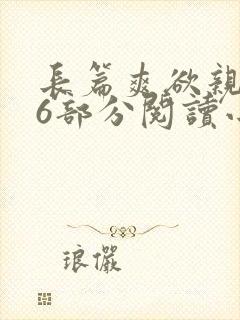 長篇爽欲親
6部分閱讀
琅儼